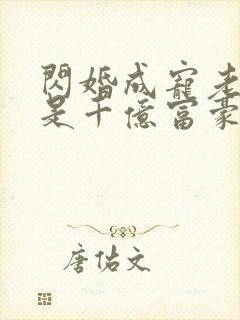 閃婚成寵老
是千億富豪
唐佑文